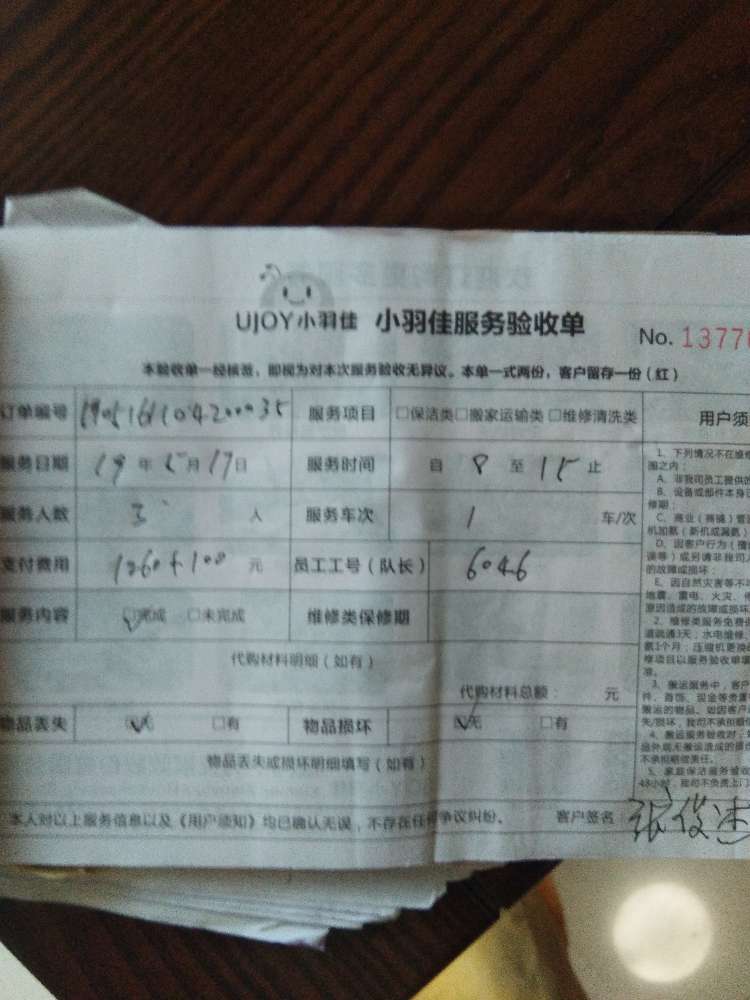 UJOY小羽佳 小羽佳服务验收单
No. 1377
本验收单一经核签，即视为对本次服务验收无异议。本单一式两份，客户留存一份（红）
订单编号 服务项目 □保洁类□搬家运输类□维修清洗类
用户须
服务日期 19年5月17日 服务时间 自 8 至 15 止
服务人数 3 人 服务车次 1 车/次
支付费用 1260+100 元 员工工号（队长） 6046
服务内容 ☑完成 □未完成 维修类保修期
代购材料明细（如有）
代购材料总额： 元
物品丢失 ☑无 □有 物品损坏 ☑无 □有
物品丢失或损坏明细填写（如有）
本人对以上服务信息以及《用户须知》均已确认无误，不存在任何争议纠纷。 客户签名 张俊杰
1、下列情况不在维
围之内：
A、非我司员工提供的
B、设备或部件本身
修期；
C、商业（商铺）管
机加氨（新机或漏氨）
D、因客户行为（擅
误等）或另请非我司人
的故障或损坏；
E、因自然灾害等不
地震、雷电、火灾、
原因造成的故障或损坏
2、维修类服务免费保
道疏通3天；水电维修
氨1个月；压缩机更换
修项目以服务验收单填
准。
3、搬运服务中，客户
件、首饰、现金等贵重
搬运的物品，如因客户
失/损坏，我司不承担赔
4、搬运服务验收时，
品外观无搬运造成的损
不承担赔偿责任。
5、家庭保洁服务验收
48小时，我司不负责上门